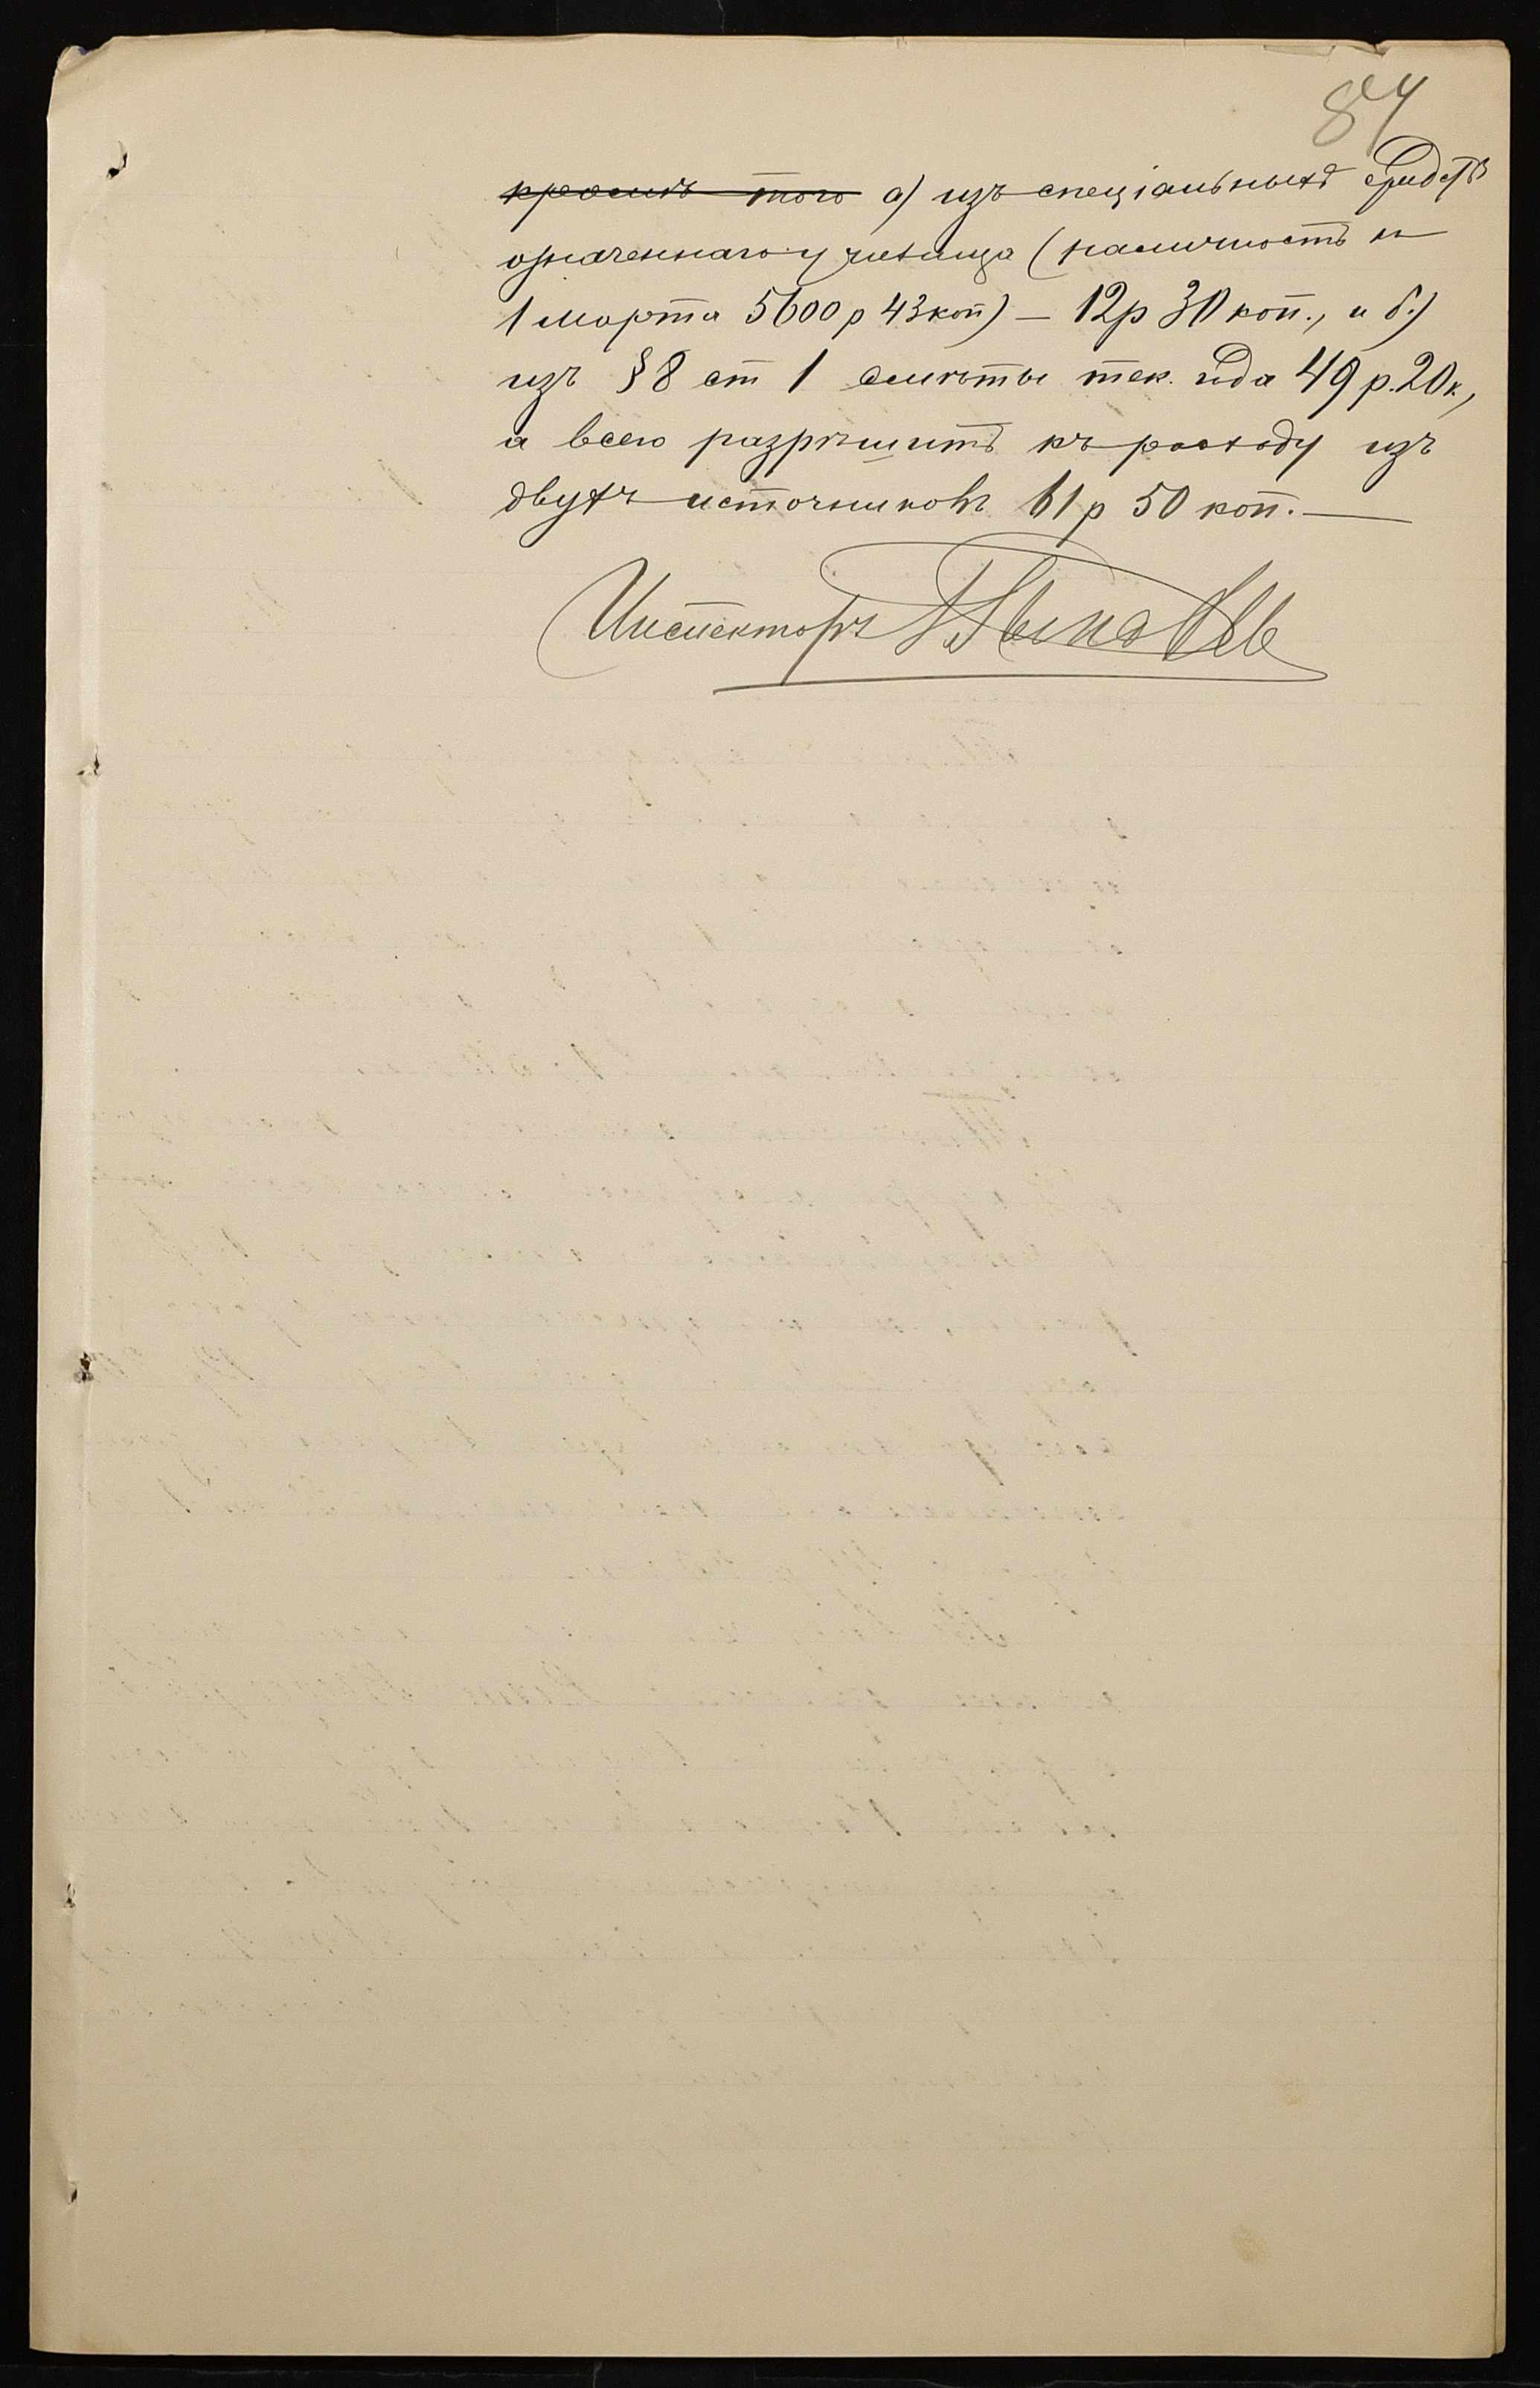 84
кромѣ того а) изъ спеціальныхъ средствъ
означеннаго училища (наличность къ
1 марта 5600 р 43 коп) — 12 р 30 коп., и б.)
изъ § 8 ст 1 смѣты тек. года 49 р. 20 к.,
а всего разрѣшить къ расходу изъ
двухъ источниковъ 61 р 50 коп. —
Инспекторъ